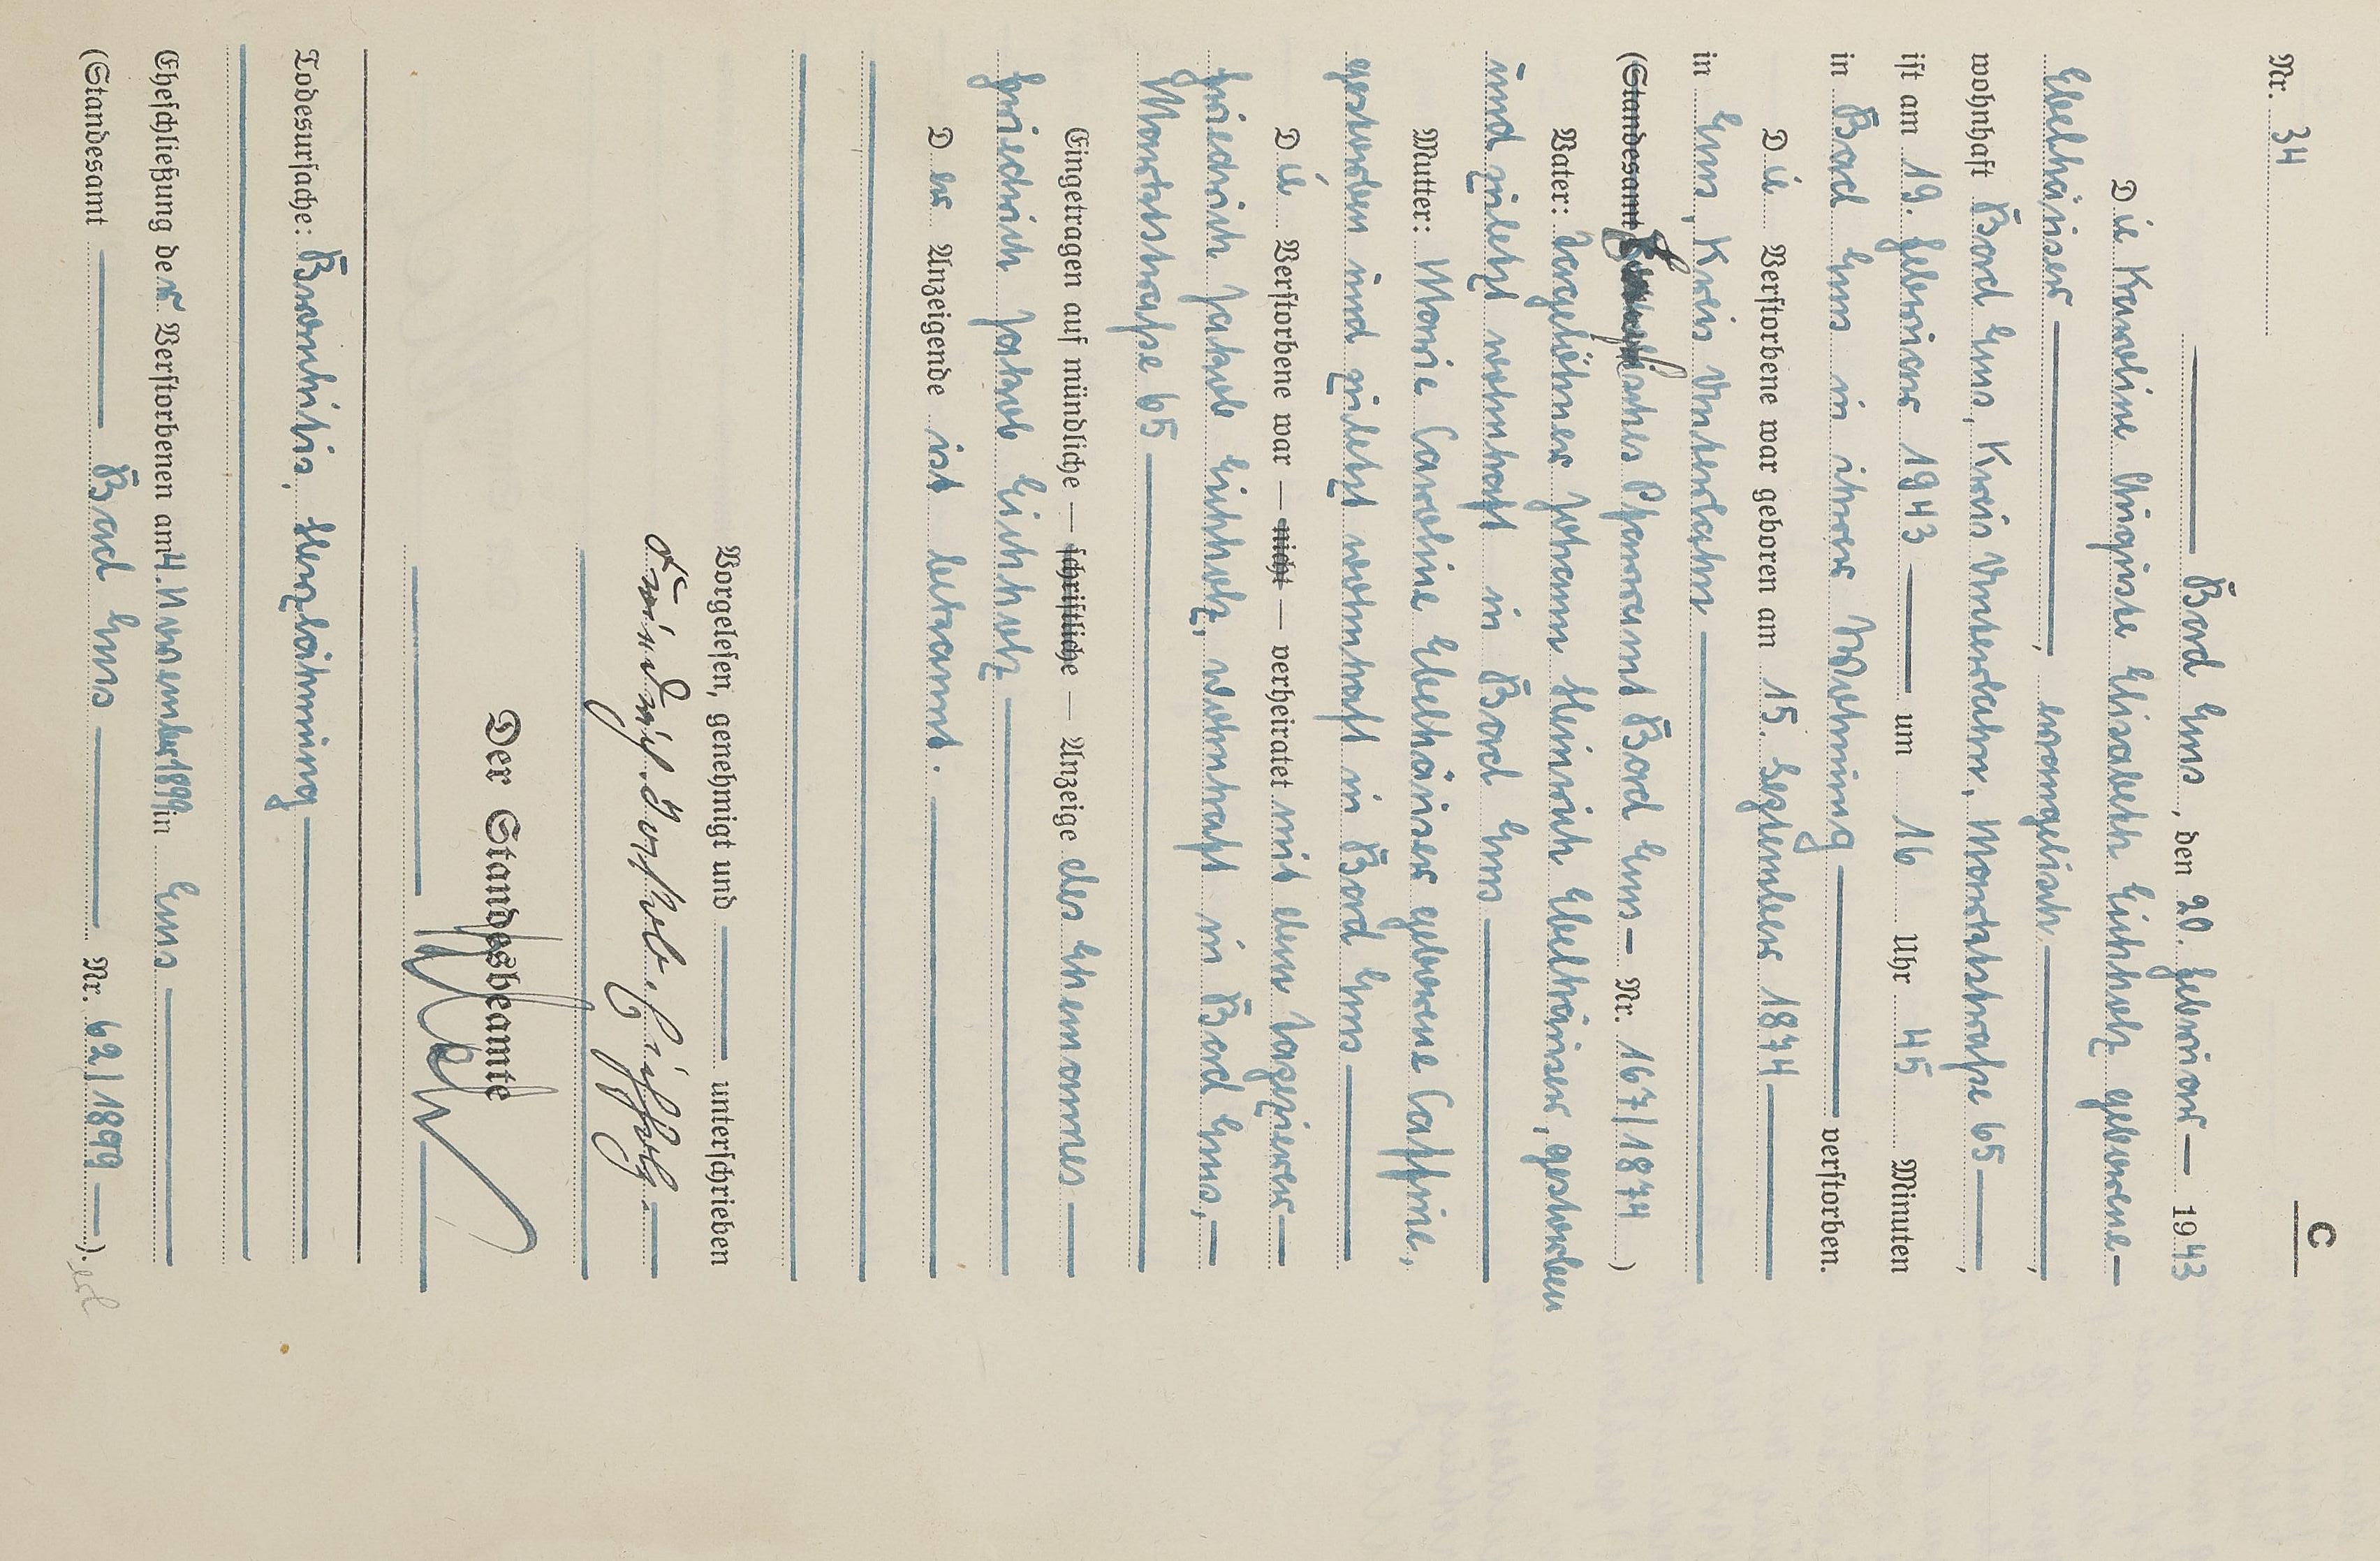 C
Nr. 34
Bad Ems, den 20. Februar 1943
Die Karoline Christine Elisabeth Eichholz geborene
Ebelhäuser, evangelisch,
wohnhaft Bad Ems, Kreis Unterlahn, Marktstraße 65,
ist am 19. Februar 1943 um 16 Uhr 45 Minuten
in Bad Ems in ihrer Wohnung verstorben.
Die Verstorbene war geboren am 15. September 1874
in Ems, Kreis Unterlahn
(Standesamt Evangelisches Pfarramt Bad Ems Nr. 167/1874)
Vater: Tagelöhner Johann Heinrich Ebelhäuser, gestorben
und zuletzt wohnhaft in Bad Ems
Mutter: Marie Caroline Ebelhäuser geborene
gestorben und zuletzt wohnhaft in Bad Ems
Die Verstorbene war — nicht — verheiratet mit dem Tapezierer
Friedrich Jakob Eichholz, wohnhaft in Bad Ems,
Marktstraße 65
Eingetragen auf mündliche — schriftliche — Anzeige des Ehemannes
Friedrich Jakob Eichholz
Der Anzeigende ist bekannt.
Vorgelesen, genehmigt und unterschrieben
Friedrich Jakob Eichholz
Der Standesbeamte
Todesursache: Bronchitis, Herzlähmung
Eheschließung der Verstorbenen am 4. November 1899 in Ems
(Standesamt Bad Ems Nr. 62/1899).